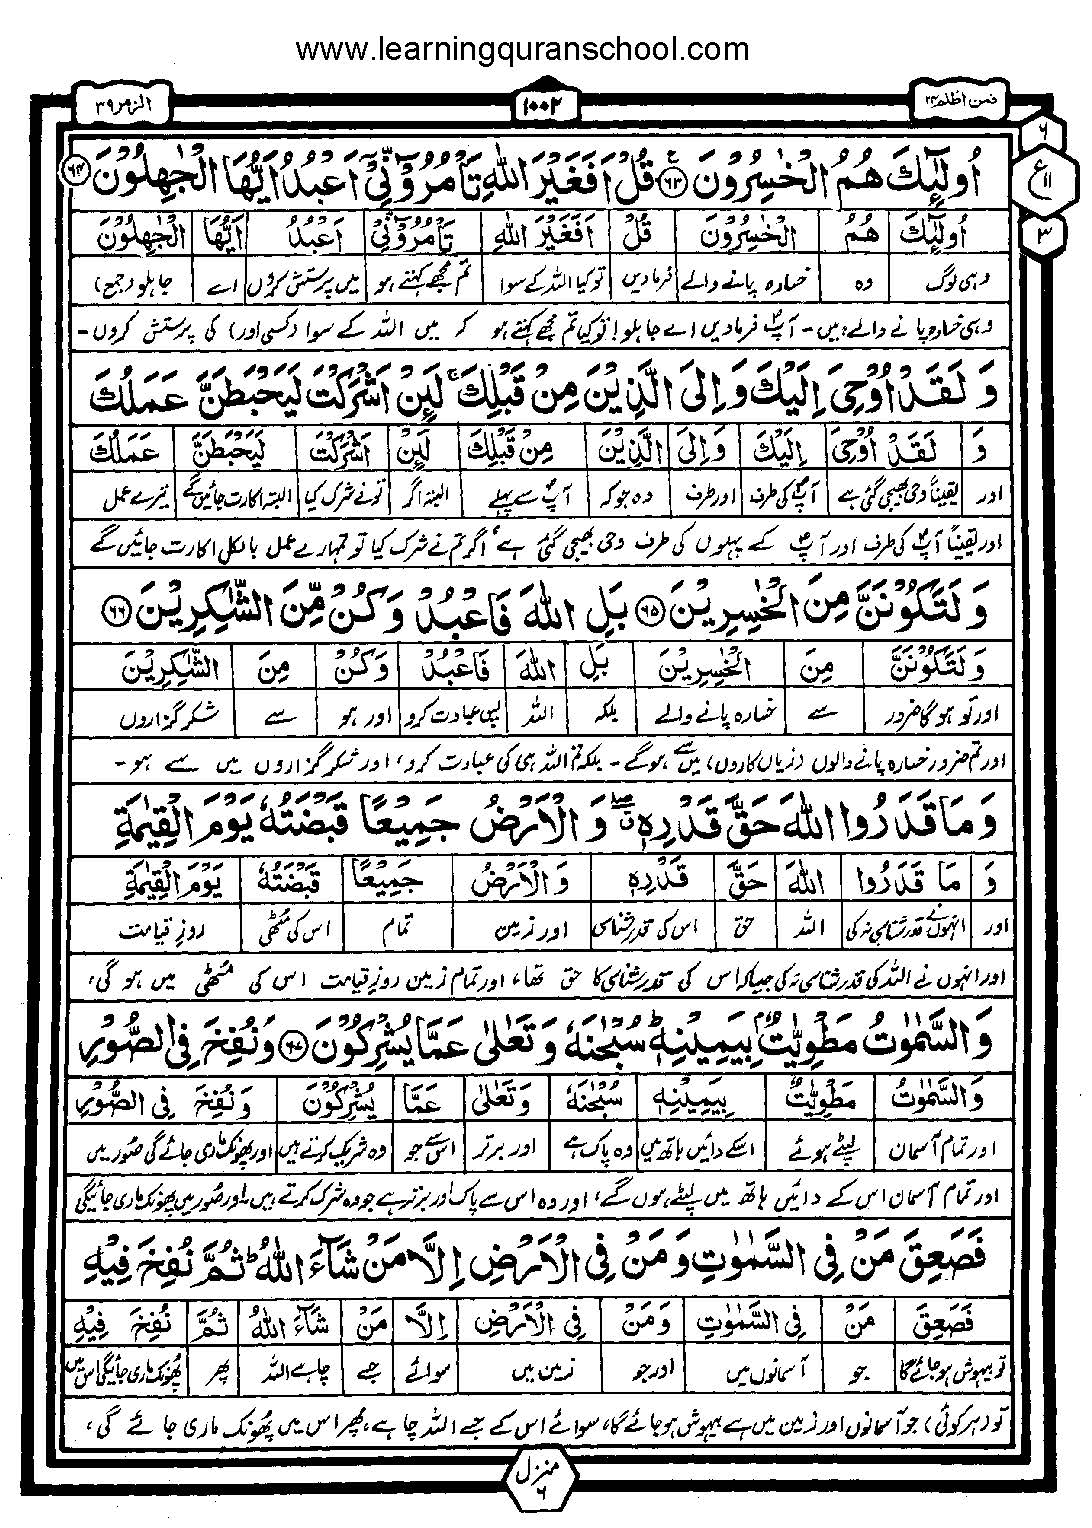 www.learningquranschool.com
الزمر ۳۹
۱۰۰۲
فمن اظلم ۲۴
۶
ع
۱۱
۳
اُولٰٓئِكَ هُمُ الْخٰسِرُوْنَ ﴿۶۳﴾ قُلْ اَفَغَيْرَ اللّٰهِ تَاْمُرُوْٓنِّيْٓ اَعْبُدُ اَيُّهَا الْجٰهِلُوْنَ ﴿۶۴﴾
اُولٰٓئِكَ هُمُ الْخٰسِرُوْنَ قُلْ اَفَغَيْرَ اللّٰهِ تَاْمُرُوْٓنِّيْٓ اَعْبُدُ اَيُّهَا الْجٰهِلُوْنَ
وہی لوگ وہ خسارہ پانے والے فرمادیں تو کیا اللہ کے سوا تم مجھے کہتے ہو میں پرستش کروں اے جاہلو (جمع)
وہی خسارہ پانے والے ہیں - آپؐ فرمادیں اے جاہلو! تو کیا تم مجھے کہتے ہو کہ میں اللہ کے سوا (کسی اور) کی پرستش کروں -
وَ لَقَدْ اُوْحِيَ اِلَيْكَ وَ اِلَى الَّذِيْنَ مِنْ قَبْلِكَ ۚ لَئِنْ اَشْرَكْتَ لَيَحْبَطَنَّ عَمَلُكَ
وَ لَقَدْ اُوْحِيَ اِلَيْكَ وَ اِلَى الَّذِيْنَ مِنْ قَبْلِكَ لَئِنْ اَشْرَكْتَ لَيَحْبَطَنَّ عَمَلُكَ
اور یقیناً وحی بھیجی گئی ہے آپؐ کی طرف اور طرف وہ جو کہ آپؐ سے پہلے البتہ اگر تو نے شرک کیا البتہ اکارت جائیں گے تیرے عمل
اور یقیناً آپؐ کی طرف اور آپؐ کے پہلوں کی طرف وحی بھیجی گئی ہے، اگر تم نے شرک کیا تو تمہارے عمل بالکل اکارت جائیں گے
وَ لَتَكُوْنَنَّ مِنَ الْخٰسِرِيْنَ ﴿۶۵﴾ بَلِ اللّٰهَ فَاعْبُدْ وَ كُنْ مِّنَ الشّٰكِرِيْنَ ﴿۶۶﴾
وَ لَتَكُوْنَنَّ مِنَ الْخٰسِرِيْنَ بَلِ اللّٰهَ فَاعْبُدْ وَ كُنْ مِنَ الشّٰكِرِيْنَ
اور تو ہوگا ضرور سے خسارہ پانے والے بلکہ اللہ پس عبادت کرو اور ہو سے شکر گزاروں
اور تم ضرور خسارہ پانے والوں (زیاں کاروں) میں سے ہوگے - بلکہ تم اللہ ہی کی عبادت کرو، اور شکر گزاروں میں سے ہو -
وَ مَا قَدَرُوا اللّٰهَ حَقَّ قَدْرِهٖ ۖ وَ الْاَرْضُ جَمِيْعًا قَبْضَتُهٗ يَوْمَ الْقِيٰمَةِ
وَ مَا قَدَرُوا اللّٰهَ حَقَّ قَدْرِهٖ وَ الْاَرْضُ جَمِيْعًا قَبْضَتُهٗ يَوْمَ الْقِيٰمَةِ
اور انہوں نے قدر شناسی نہ کی اللہ حق اس کی قدر شناسی اور زمین تمام اس کی مٹھی روزِ قیامت
اور انہوں نے اللہ کی قدر شناسی نہ کی جیسا کہ اس کی قدر شناسی کا حق تھا، اور تمام زمین روزِ قیامت اس کی مٹھی میں ہو گی،
وَ السَّمٰوٰتُ مَطْوِيّٰتٌۢ بِيَمِيْنِهٖ ؕ سُبْحٰنَهٗ وَ تَعٰلٰى عَمَّا يُشْرِكُوْنَ ﴿۶۷﴾ وَ نُفِخَ فِي الصُّوْرِ
وَ السَّمٰوٰتُ مَطْوِيّٰتٌۢ بِيَمِيْنِهٖ سُبْحٰنَهٗ وَ تَعٰلٰى عَمَّا يُشْرِكُوْنَ وَ نُفِخَ فِي الصُّوْرِ
اور تمام آسمان لپٹے ہوئے اسکے دائیں ہاتھ میں وہ پاک ہے اور برتر اس سے جو وہ شریک کرتے ہیں اور پھونک ماری جائے گی صُور میں
اور تمام آسمان اس کے دائیں ہاتھ میں لپٹے ہوں گے، اور وہ اس سے پاک اور برتر ہے جو وہ شرک کرتے ہیں۔ اور صُور میں پھونک ماری جائیگی
فَصَعِقَ مَنْ فِي السَّمٰوٰتِ وَ مَنْ فِي الْاَرْضِ اِلَّا مَنْ شَآءَ اللّٰهُ ؕ ثُمَّ نُفِخَ فِيْهِ
فَصَعِقَ مَنْ فِي السَّمٰوٰتِ وَ مَنْ فِي الْاَرْضِ اِلَّا مَنْ شَآءَ اللّٰهُ ثُمَّ نُفِخَ فِيْهِ
تو بیہوش ہو جائے گا جو آسمانوں میں اور جو زمین میں سوائے جسے چاہے اللہ پھر پھونک ماری جائیگی اس میں
تو (ہر کوئی) جو آسمانوں اور زمین میں ہے بیہوش ہو جائے گا، سوائے اس کے جسے اللہ چاہے، پھر اس میں پھونک ماری جائے گی،
منزل
۶